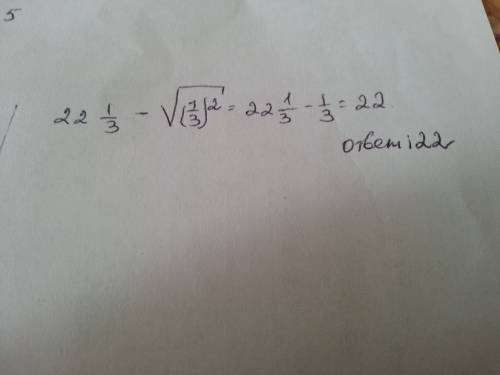 5
22 1/3 - √(1/3)² = 22 1/3 - 1/3 = 22.
ответ: 22